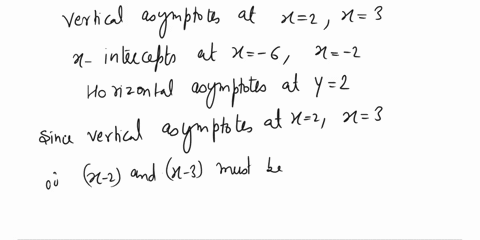 Vertical asymptotes at x=2, x=3
x- intercepts at x=-6, x=-2
Horizontal asymptotes at y=2
Since vertical asymptotes at x=2, x=3
(x-2) and (x-3) must be